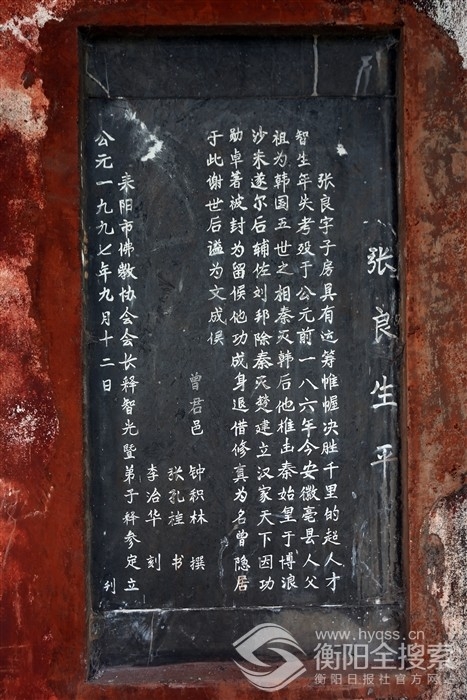 张良生平
张良字子房具有运筹帷幄决胜千里的超人才
智生年失考殁于公元前一八六年今安徽亳县人父
祖为韩国五世之相秦灭韩后他椎击秦始皇于博浪
沙未遂尔后辅佐刘邦除秦灭楚建立汉家天下因功
勋卓著被封为留侯他功成身退借修真为名曾隐居
于此谢世后谥为文成侯
曾君邑 钟积林 撰
张 书
李治华 刻
耒阳市佛教协会会长释智光暨弟子释参定立
公元一九九七年九月十二日 刊
www.hyqss.cn
衡阳全搜索
衡阳日报社官方网